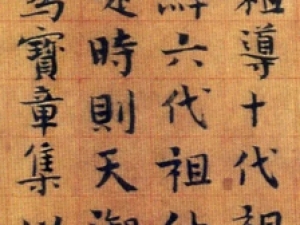 祖導十代祖
六代祖仲
是時則天御
為寶章集以